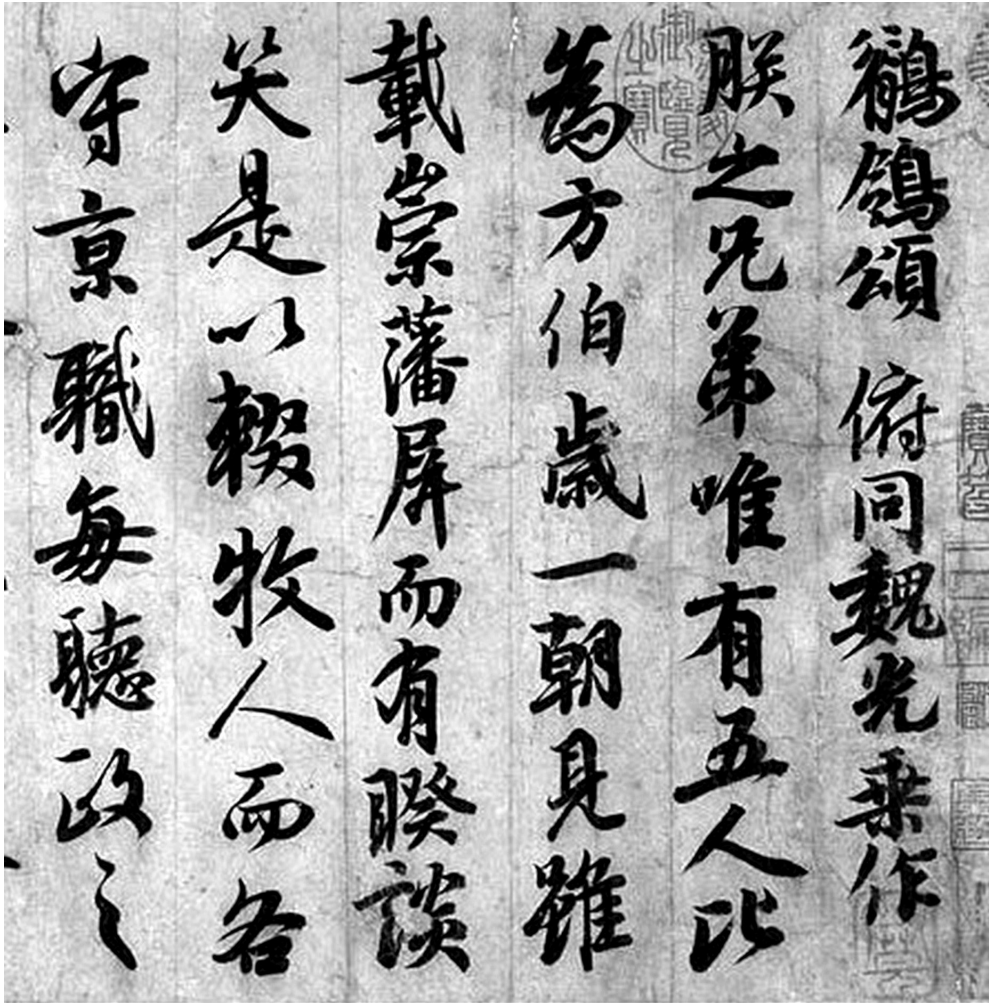 鶺鴒頌 俯同魏光乗作
朕之兄弟唯有五人比
為方伯歳一朝見雖
載崇藩屏而有睽談
笑是以輟牧人而各
守京職每聽政之